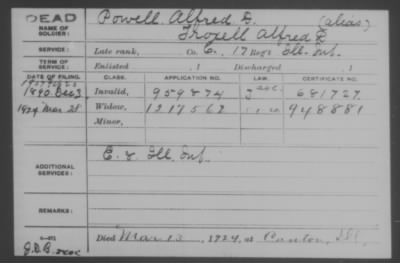 DEAD
NAME OF SOLDIER: Powell Alfred D. (alias)
Troxell Alfred D
SERVICE: Late rank, Co. E., 17 Reg't Ill. Inf.
TERM OF SERVICE: Enlisted , 1 Discharged , 1
DATE OF FILING. CLASS. APPLICATION NO. LAW. CERTIFICATE NO.
1890 Dec 3 Invalid, 959874 681727
1924 Mar 28 Widow, 1217562 948881
Minor,
ADDITIONAL SERVICES: Ill. Inf.
REMARKS:
Died Mar 13, 1924, at Canton, Ill.